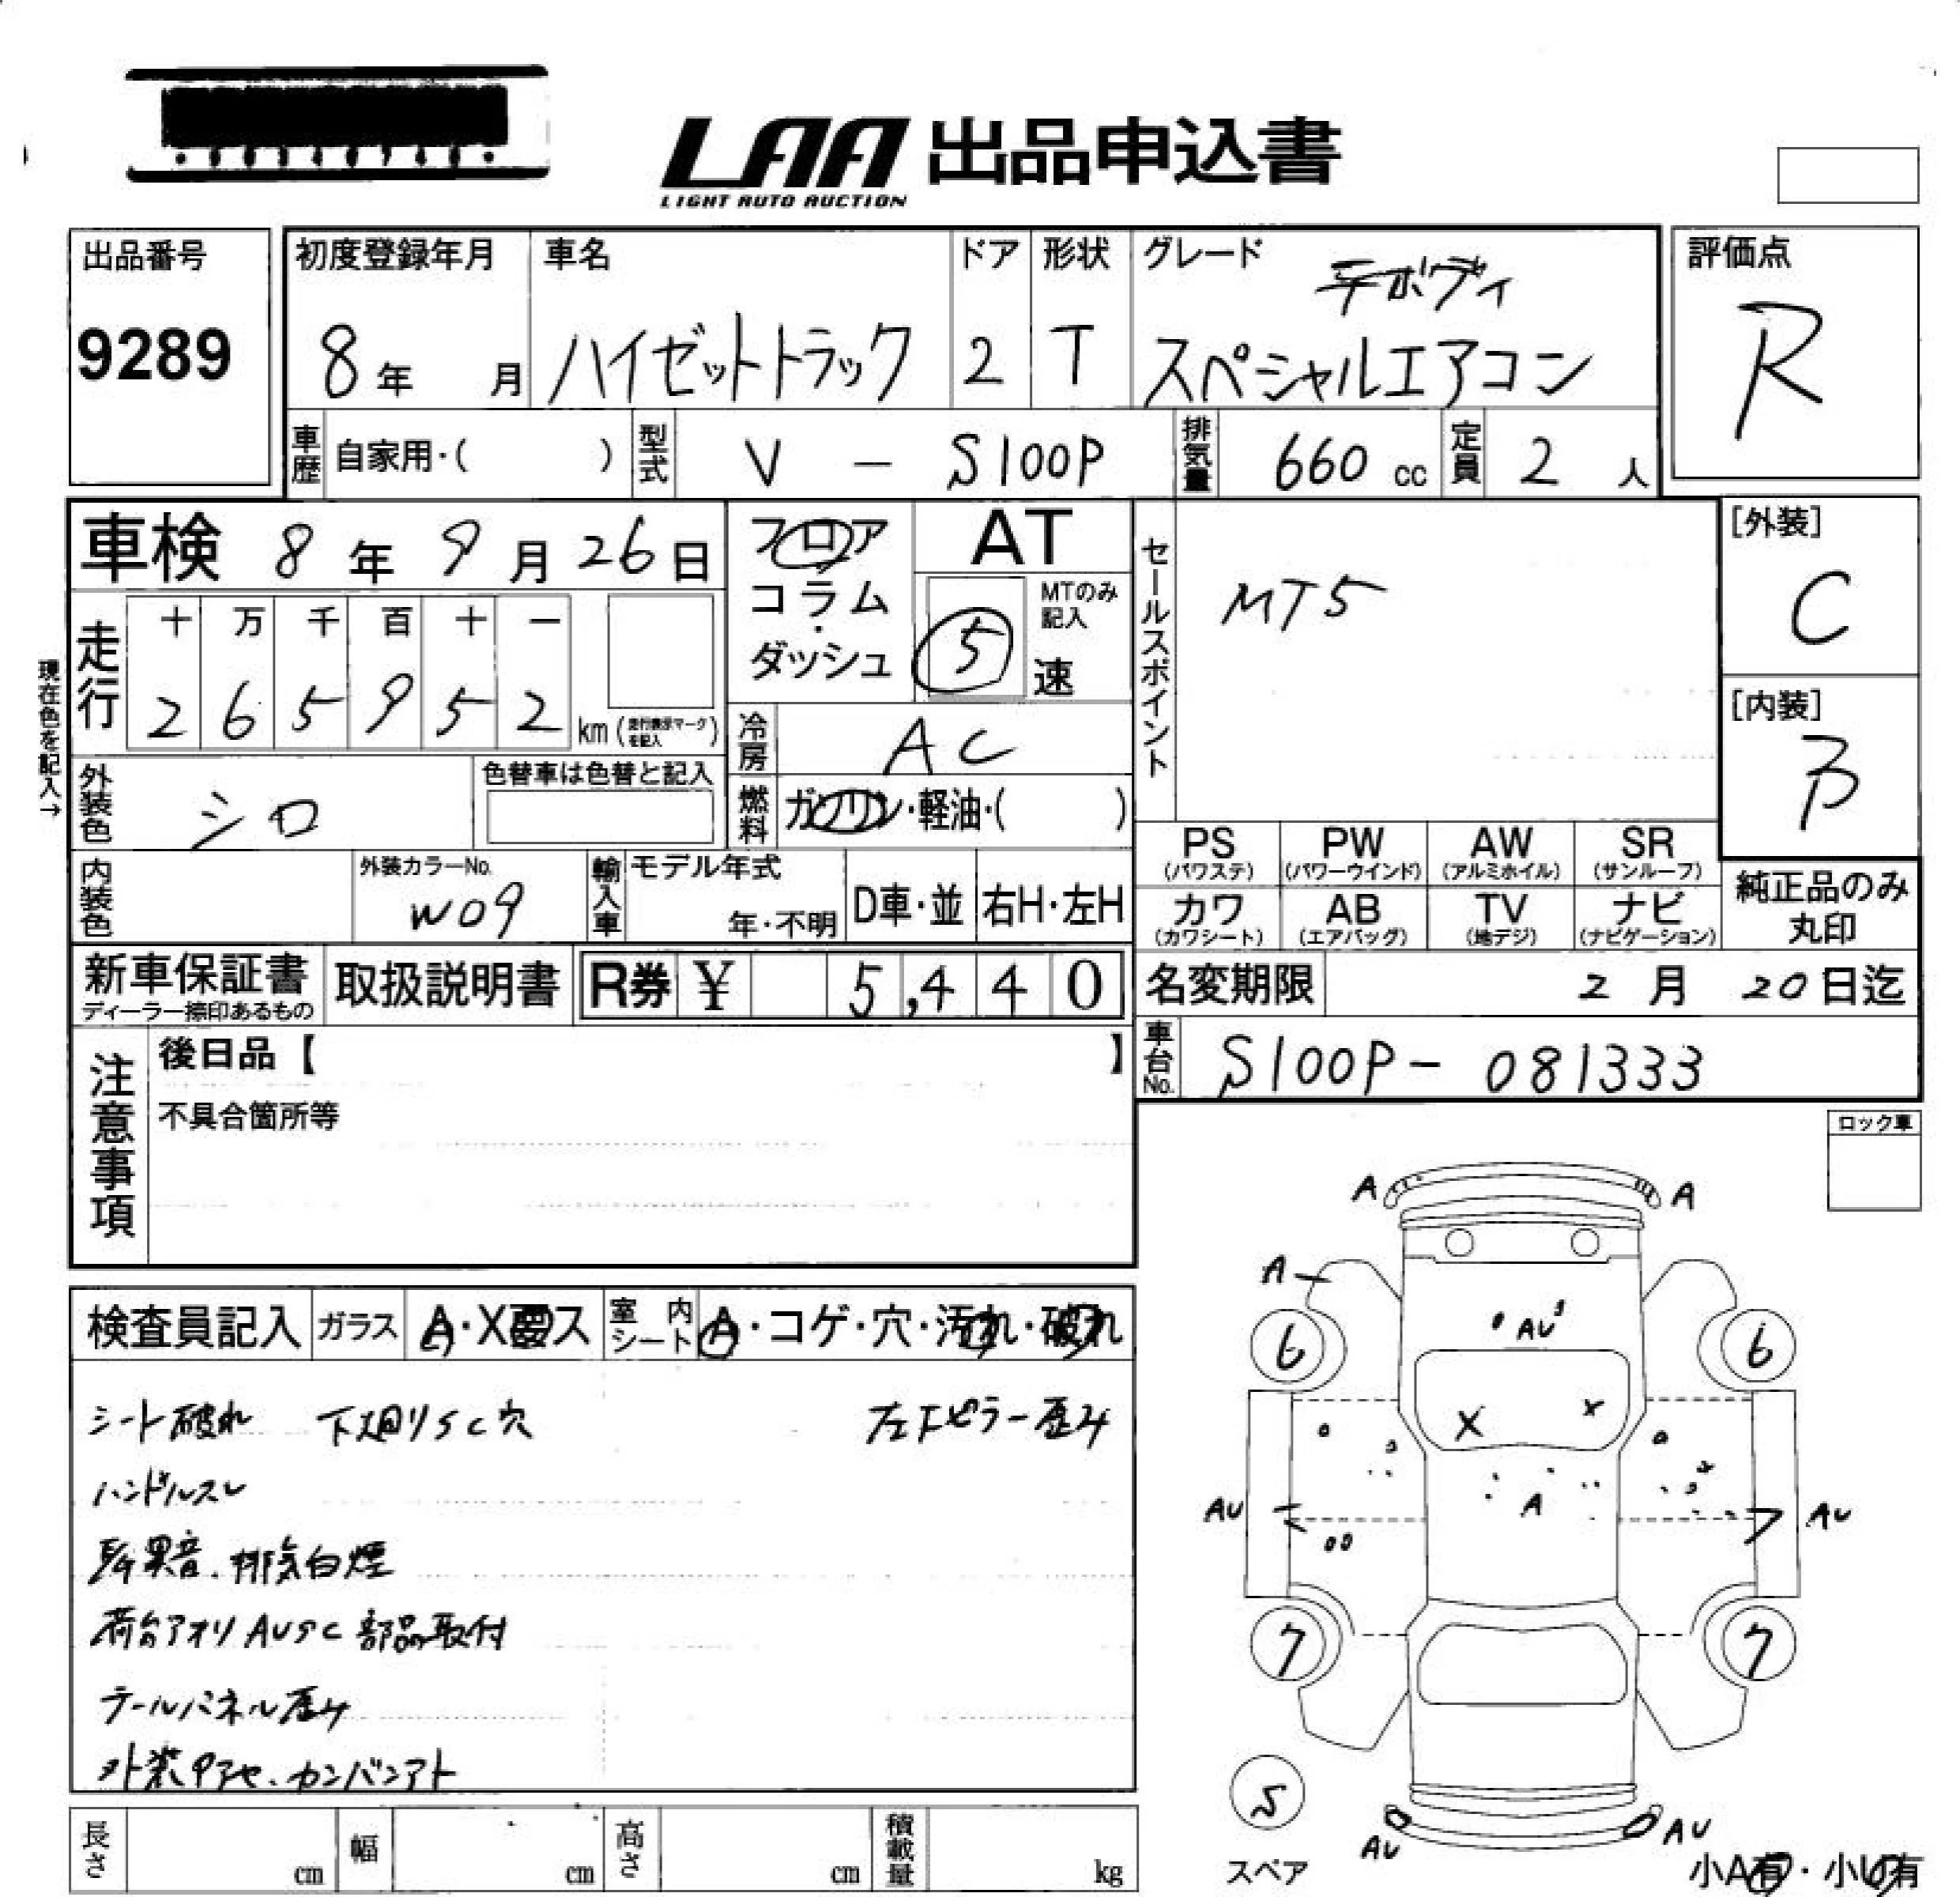 LAA 出品申込書
LIGHT AUTO AUCTION
出品番号
9289
初度登録年月
8年 月
車名
ハイゼットトラック
ドア
2
形状
T
グレード
スペシャルエアコン
評価点
R
車歴 自家用・( )
型式 V - S100P
排気量 660 cc
定員 2 人
車検 8年 9月 26日
フロア
コラム
・
ダッシュ
AT
MTのみ記入
5 速
セールスポイント
MT5
[外装]
C
[内装]
B
現在色を記入→
走行
十 万 千 百 十 一
2 6 5 9 5 2 km (走行表示マークを記入)
冷房 AC
燃料 ガソリン・軽油・( )
外装色 シロ
色替車は色替と記入
内装色
外装カラーNo.
W09
輸入車
モデル年式
年・不明
D車・並
右H・左H
PS (パワステ)
PW (パワーウインド)
AW (アルミホイル)
SR (サンルーフ)
カワ (カワシート)
AB (エアバッグ)
TV (地デジ)
ナビ (ナビゲーション)
純正品のみ
丸印
新車保証書
ディーラー捺印あるもの
取扱説明書
R券 ¥ 5,440
名変期限 2月 20日迄
車台No. S100P- 081333
注意事項
後日品【 】
不具合箇所等
ロック車
検査員記入
ガラス A・X要ス
室内シート A・コゲ・穴・汚れ・破れ
シート破れ 下廻りSC穴 左下ピラー歪み
ハンドルスレ
異音、排気白煙
荷台アオリAUSC 部品取付
テールパネル歪み
外装色アセ、カンバンアト
A A
A
AU
6 6
X X
AU A AU
7 7
5
スペア
AU AU
小A有・小U有
長さ cm
幅 cm
高さ cm
積載量 kg